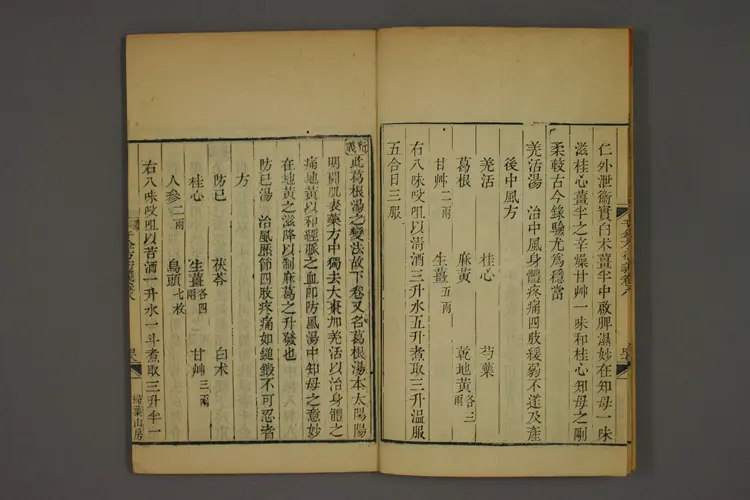 仁外泄衞實白术薑半中啟脾濕妙在知母一味
滋桂心薑半之辛燥甘艸一味和桂心知母之剛
柔較古今錄驗尤爲穩當
羌活湯 治中風身體疼痛四肢緩弱不遂及產
後中風方
羌活 桂心 芍藥
葛根 麻黃 乾地黃各三兩
甘艸二兩 生薑五兩
右八味㕮咀以淸酒三升水五升煮取三升溫服
五合日三服
衍義此葛根湯之變法故下卷又名葛根湯本太陽陽
明開肌表藥方中獨去大棗加羌活以治身體之
痛地黃以和經脈之血卽防風湯中知母之意妙
在地黃之滋降以制麻葛之升發也
防已湯 治風歷節四肢疼痛如鎚鍛不可忍者
方
防已 茯苓 白术
桂心 生薑各四兩 甘艸三兩
人參二兩 烏頭七枚
右八味㕮咀以苦酒一升水一斗煮取三升半一
掃葉山房